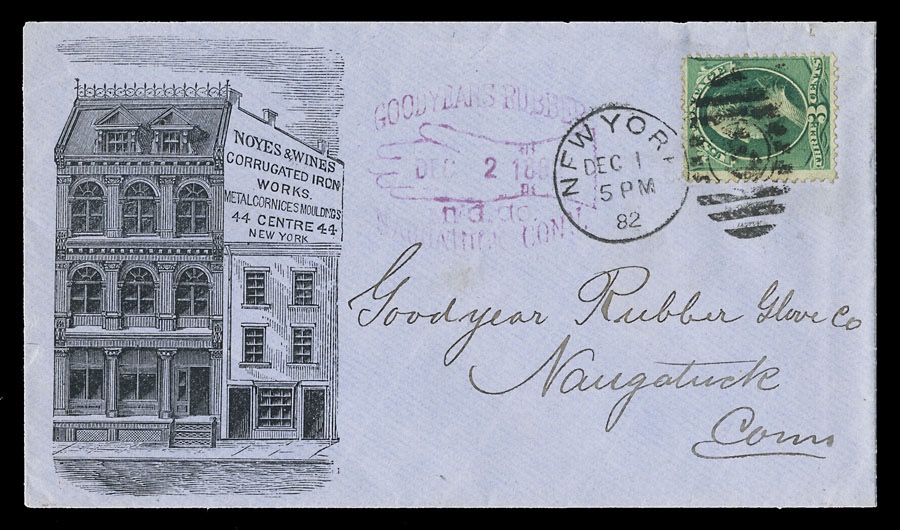 NOYES & WINES
CORRUGATED IRON
WORKS.
METAL CORNICES MOULDINGS
44 CENTRE 44
NEW YORK
GOODYEARS RUBBER
DEC 2 188
NEW YORK
DEC 1
5 PM
82
3
Goodyear Rubber Glove Co
Naugatuck
Conn